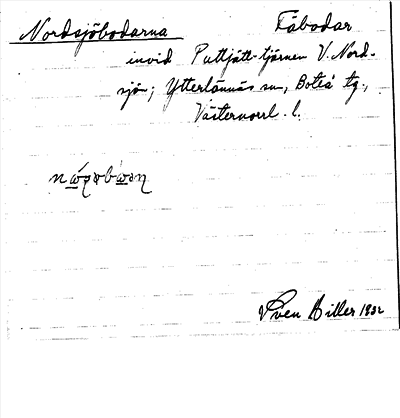 Nordsjöbodarna Fäbodar
invid Puttjätt-tjärnen V. Nord-
sjön; Ytterlännäs sn, Boteå tg.,
Västernorrl. l.
Sven Biller 1932